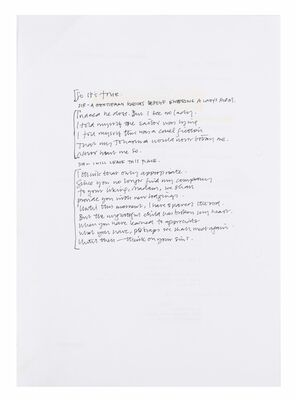 So it's true.
SIR - A GENTLEMAN KNOCKS BEFORE ENTERING A LADY'S ROOM.
Indeed he does. But I see no lady.
I told myself the sailor was lying
I told myself this was a cruel fiction
That my Johanna would never betray me.
Never hurt me so.
SIR, I WILL LEAVE THIS PLACE.
I think that only appropriate.
Since you no longer find my company
to your liking, Madam, we shall
provide you with new lodgings.
Until this moment, I have spared the rod.
But the ungrateful child has broken my heart.
When you have learned to appreciate
what you have, perhaps we shall meet again.
Until then — think on your sins.